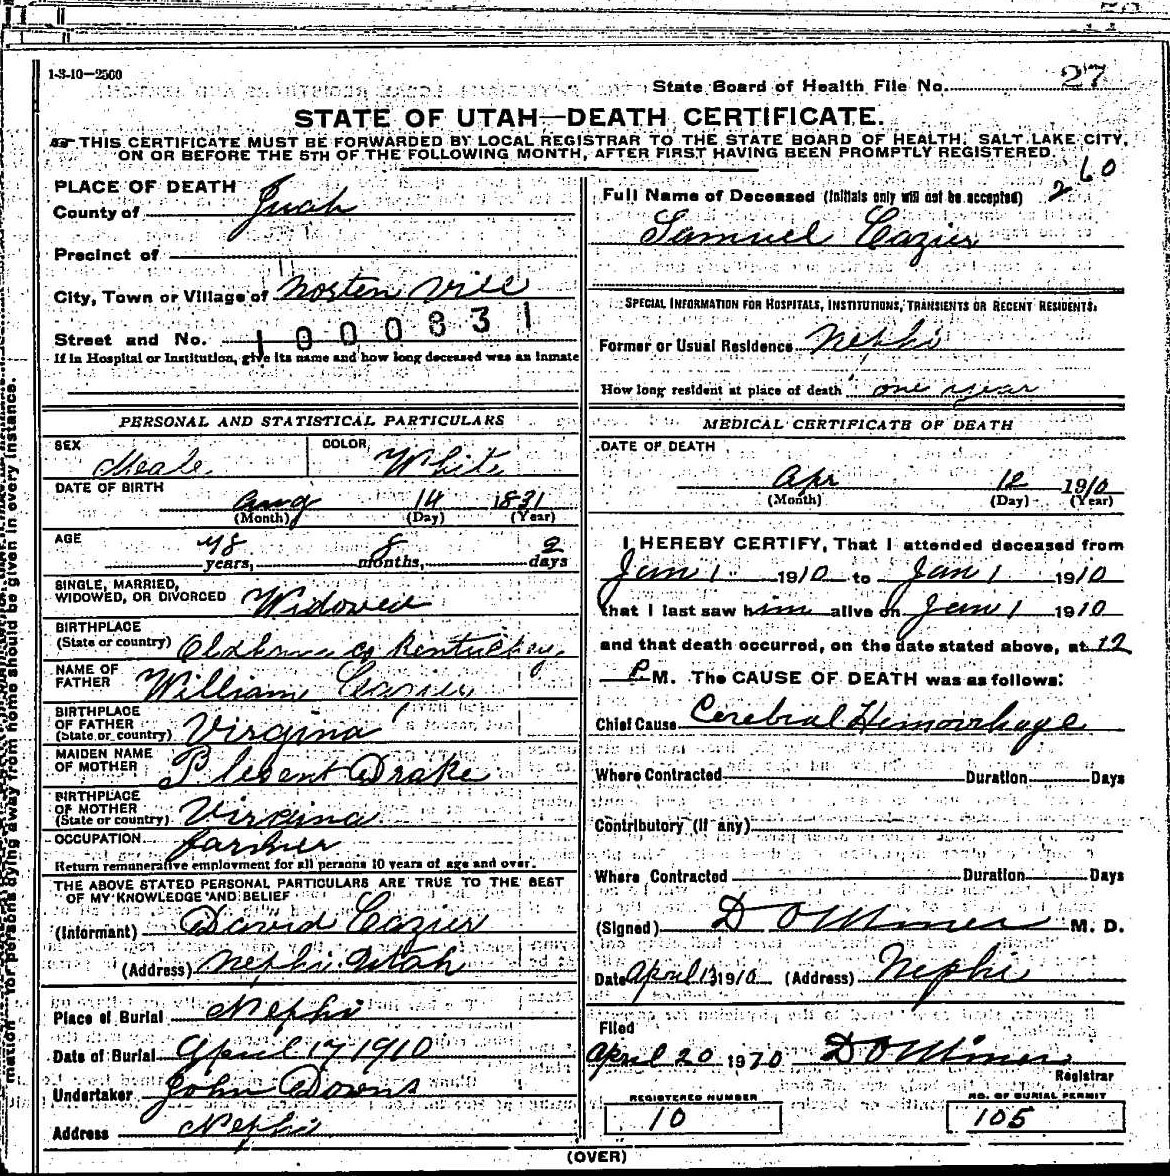 1-3-10—2500
State Board of Health File No. 27
STATE OF UTAH—DEATH CERTIFICATE.
THIS CERTIFICATE MUST BE FORWARDED BY LOCAL REGISTRAR TO THE STATE BOARD OF HEALTH, SALT LAKE CITY,
ON OR BEFORE THE 5TH OF THE FOLLOWING MONTH, AFTER FIRST HAVING BEEN PROMPTLY REGISTERED.
260
PLACE OF DEATH
County of Juab
Precinct of
City, Town or Village of Norten Vill
Street and No. 1000831
If in Hospital or Institution, give its name and how long deceased was an inmate
Full Name of Deceased (Initials only will not be accepted)
Samuel Cazier
SPECIAL INFORMATION FOR HOSPITALS, INSTITUTIONS, TRANSIENTS OR RECENT RESIDENTS.
Former or Usual Residence Nephi
How long resident at place of death one year
PERSONAL AND STATISTICAL PARTICULARS
SEX Meale
COLOR White
DATE OF BIRTH
Aug 14 1831
(Month) (Day) (Year)
AGE
78 years, 8 months, 2 days
SINGLE, MARRIED,
WIDOWED, OR DIVORCED Widowed
BIRTHPLACE
(State or country) co Kentuckey
NAME OF
FATHER William Cazier
BIRTHPLACE
OF FATHER
(State or country) Virgina
MAIDEN NAME
OF MOTHER Plesent Drake
BIRTHPLACE
OF MOTHER
(State or country) Virgina
OCCUPATION farmer
Return remunerative employment for all persons 10 years of age and over.
THE ABOVE STATED PERSONAL PARTICULARS ARE TRUE TO THE BEST
OF MY KNOWLEDGE AND BELIEF
(Informant) David Cazier
(Address) Nephi Utah
Place of Burial Nephi
Date of Burial April 17 1910
Undertaker John Downs
Address Nephi
MEDICAL CERTIFICATE OF DEATH
DATE OF DEATH
Apr 12 1910
(Month) (Day) (Year)
I HEREBY CERTIFY, That I attended deceased from
Jan 1 1910 to Jan 1 1910
that I last saw him alive on Jan 1 1910
and that death occurred, on the date stated above, at 12
P M. The CAUSE OF DEATH was as follows:
Chief Cause Cerebral Hemorrhage
Where Contracted Duration Days
Contributory (If any)
Where Contracted Duration Days
(Signed) D O Miner M. D.
Date April 13 1910 (Address) Nephi
Filed
April 20 1910 D O Miner
Registrar
REGISTERED NUMBER
10
NO. OF BURIAL PERMIT
105
(OVER)
mation for persons dying away from home should be given in every instance.